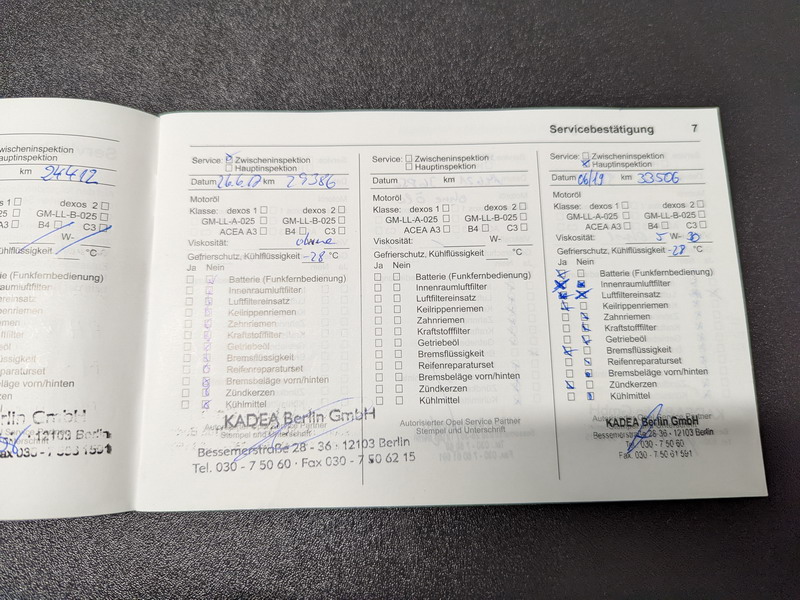 Servicebestätigung 7
wischeninspektion
auptinspektion
24412
xos 1 dexos 2
GM-LL-B-025
B4 C3
W-
hlflüssigkeit °C
e (Funkfernbedienung)
enraumluftfilter
tereinsatz
nriemen
emen
offfilter
eöl
lüssigkeit
paraturset
eläge vorn/hinten
rzen
tel
rlin GmbH
12103 Berlin
Service: Zwischeninspektion
Hauptinspektion
Datum 26.6.17 km 29386
Motoröl
Klasse: dexos 1 dexos 2
GM-LL-A-025 GM-LL-B-025
ACEA A3 B4 C3
Viskosität: ohne
Gefrierschutz, Kühlflüssigkeit -28 °C
Ja Nein
Batterie (Funkfernbedienung)
Innenraumluftfilter
Luftfiltereinsatz
Keilrippenriemen
Zahnriemen
Kraftstofffilter
Getriebeöl
Bremsflüssigkeit
Reifenreparaturset
Bremsbeläge vorn/hinten
Zündkerzen
Kühlmittel
KADEA Berlin GmbH
Stempel und Unterschrift
Bessemerstraße 28 - 36 · 12103 Berlin
Tel. 030 - 7 50 60 · Fax 030 - 7 50 62 15
Service: Zwischeninspektion
Hauptinspektion
Datum km
Motoröl
Klasse: dexos 1 dexos 2
GM-LL-A-025 GM-LL-B-025
ACEA A3 B4 C3
Viskosität: W-
Gefrierschutz, Kühlflüssigkeit °C
Ja Nein
Batterie (Funkfernbedienung)
Innenraumluftfilter
Luftfiltereinsatz
Keilrippenriemen
Zahnriemen
Kraftstofffilter
Getriebeöl
Bremsflüssigkeit
Reifenreparaturset
Bremsbeläge vorn/hinten
Zündkerzen
Kühlmittel
Autorisierter Opel Service Partner
Stempel und Unterschrift
Service: Zwischeninspektion
Hauptinspektion
Datum 06/19 km 33506
Motoröl
Klasse: dexos 1 dexos 2
GM-LL-A-025 GM-LL-B-025
ACEA A3 B4 C3
Viskosität: 5 W- 30
Gefrierschutz, Kühlflüssigkeit -28 °C
Ja Nein
Batterie (Funkfernbedienung)
Innenraumluftfilter
Luftfiltereinsatz
Keilrippenriemen
Zahnriemen
Kraftstofffilter
Getriebeöl
Bremsflüssigkeit
Reifenreparaturset
Bremsbeläge vorn/hinten
Zündkerzen
Kühlmittel
Autorisierter Opel Service Partner
KADEA Berlin GmbH
Bessemerstraße 28 - 36 · 12103 Berlin
Tel. 030 - 7 50 60
Fax. 030 - 7 50 61 591